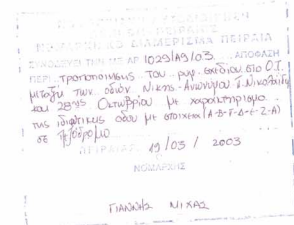 ΝΟΜΑΡΧΙΑΚΟ ΔΙΑΜΕΡΙΣΜΑ ΠΕΙΡΑΙΑ
ΣΥΝΟΔΕΥΕΙ ΤΗΝ ΥΠ' ΑΡ 1029/Α9/03 ΑΠΟΦΑΣΗ
ΠΕΡΙ τροποποίησης του ρυμ. σχεδίου στο Ο.Τ.
μεταξύ των οδών Νίκης-Αντωνίου Τ. Νικολαΐδη
και 28ης Οκτωβρίου με χαρακτηρισμό
της ιδιωτικής οδού με στοιχεία (Α-Β-Γ-Δ-Ε-Ζ-Α)
σε πεζόδρομο
ΠΕΙΡΑΙΑΣ 19/03/2003
ΝΟΜΑΡΧΗΣ
ΓΙΑΝΝΗΣ ΜΙΧΑΣ